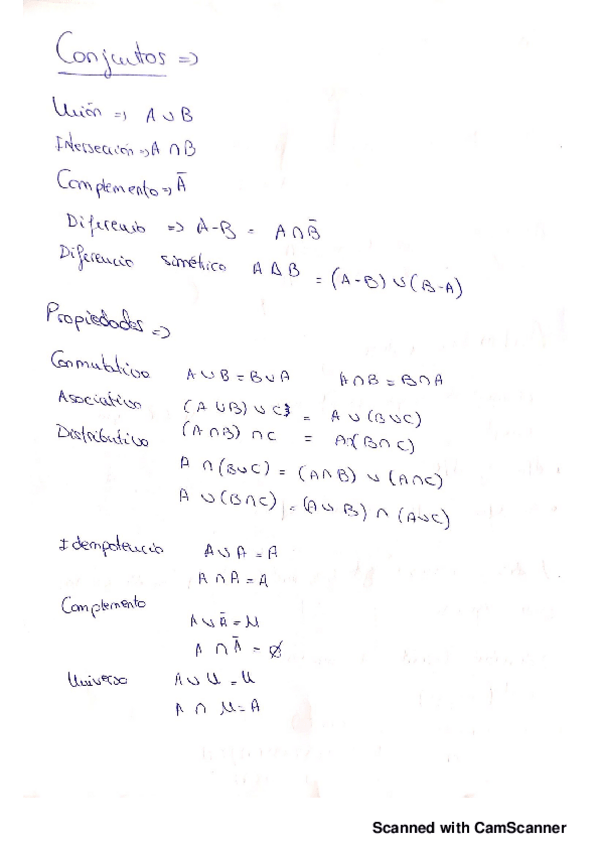 Conjuntos =>
Unión => A ∪ B
Intersección => A ∩ B
Complemento => Ā
Diferencia => A-B = A ∩ B̄
Diferencia simétrica A Δ B = (A-B) ∪ (B-A)
Propiedades =>
Conmutativa A ∪ B = B ∪ A A ∩ B = B ∩ A
Asociativa (A ∪ B) ∪ C = A ∪ (B ∪ C)
(A ∩ B) ∩ C = A ∩ (B ∩ C)
Distributiva
A ∩ (B ∪ C) = (A ∩ B) ∪ (A ∩ C)
A ∪ (B ∩ C) = (A ∪ B) ∩ (A ∪ C)
Idempotencia A ∪ A = A
A ∩ A = A
Complemento
A ∪ Ā = U
A ∩ Ā = Ø
Universo A ∪ U = U
A ∩ U = A
Scanned with CamScanner